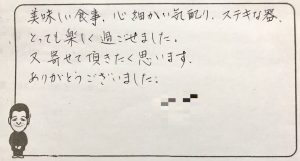 美味しい食事、心細かい気配り、ステキな器、
とっても楽しく過ごせました。
又寄せて頂きたく思います。
ありがとうございました。